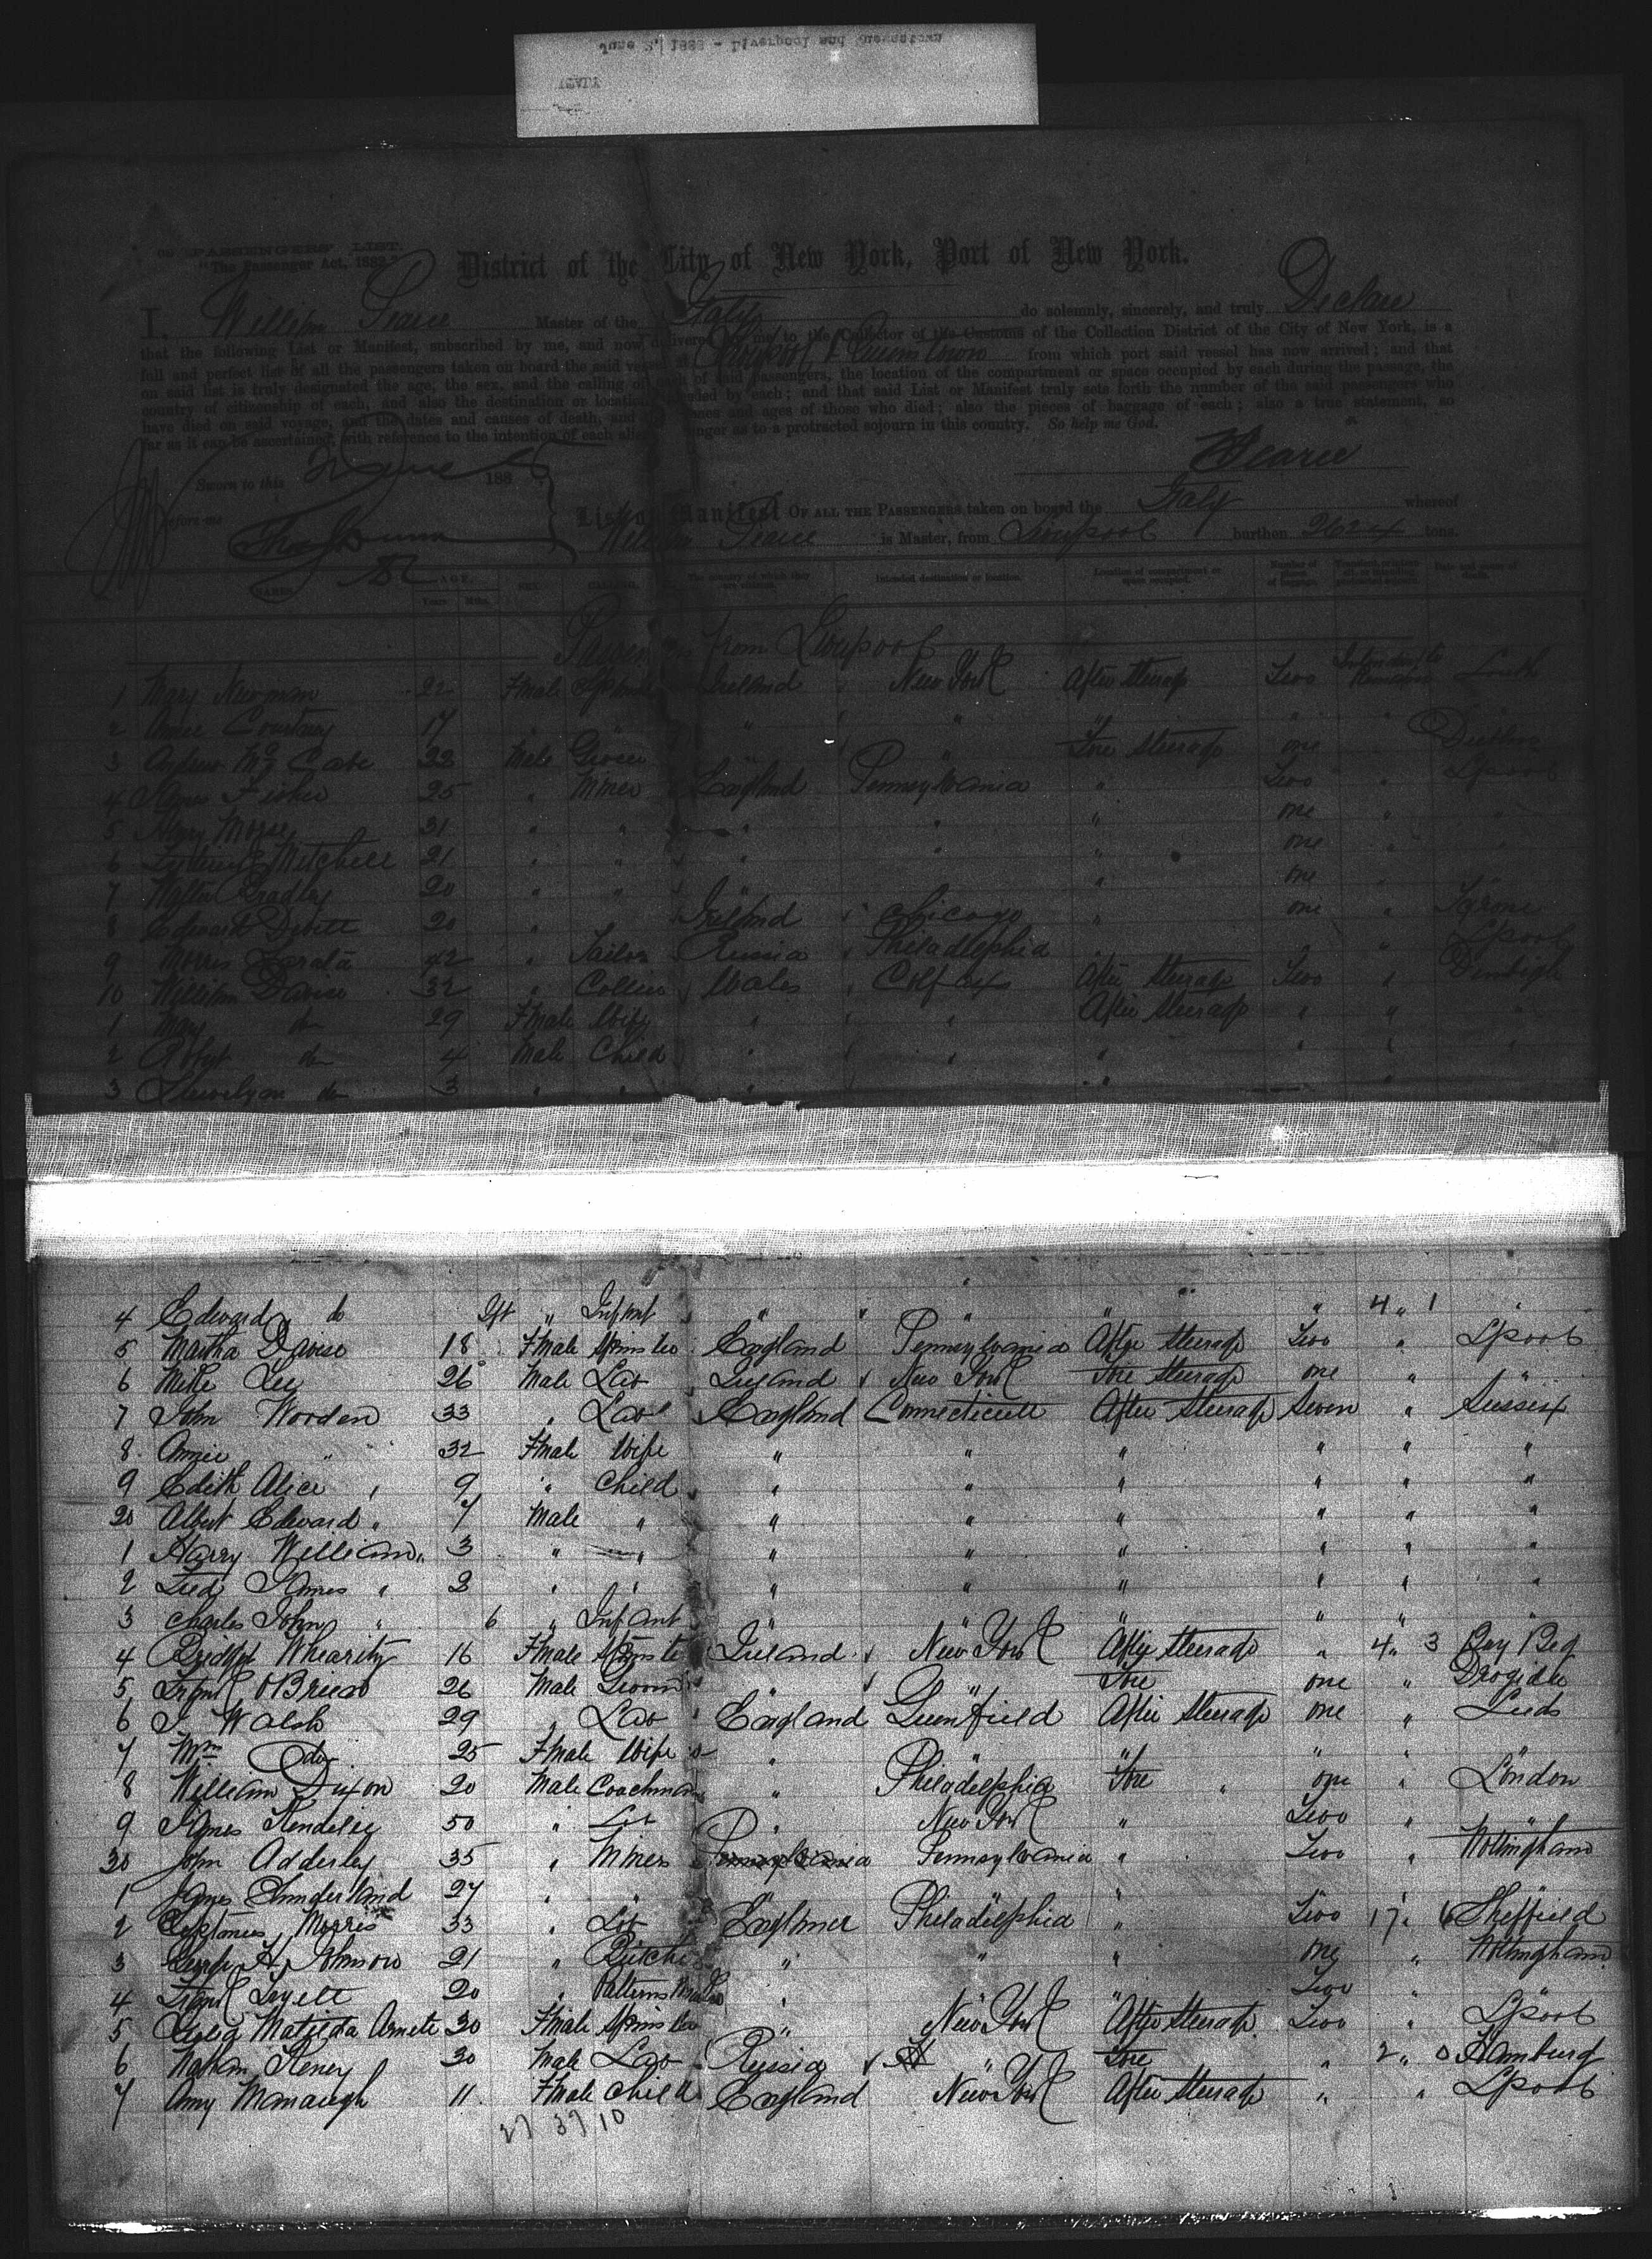 June 2, 1888 - Liverpool and Queenstown
ITALY
PASSENGERS' LIST.
"The Passenger Act, 1882."
District of the City of New York, Port of New York.
I, William Pearce Master of the Italy do solemnly, sincerely, and truly Declare
that the following List or Manifest, subscribed by me, and now delivered by me to the Collector of the Customs of the Collection District of the City of New York, is a
full and perfect list of all the passengers taken on board the said vessel at Liverpool & Queenstown from which port said vessel has now arrived; and that
on said list is truly designated the age, the sex, and the calling of each of said passengers, the location of the compartment or space occupied by each during the passage, the
country of citizenship of each, and also the destination or location intended by each; and that said List or Manifest truly sets forth the number of the said passengers who
have died on said voyage, and the dates and causes of death, and the names and ages of those who died; also the pieces of baggage of each; also a true statement, so
far as it can be ascertained, with reference to the intention of each alien passenger as to a protracted sojourn in this country. So help me God.
WPearce
Sworn to this 2 June 188
before me
List or Manifest OF ALL THE PASSENGERS taken on board the Italy whereof
William Pearce is Master, from Liverpool burthen 2624 tons.
NAMES. AGE. Years. Mths. SEX. CALLING. The country of which they are citizens. Intended destination or location. Location of compartment or space occupied. Number of pieces of baggage. Date and cause of death.
Passengers from Liverpool
1 Mary Newman 22 Fmale Spinster Ireland New York After Steerage Two Louth
2 Annie Courtney 17 " " " " " " "
3 Andrew McCabe 22 Male Grocer " " Fore Steerage one " Dublin
4 James Fisher 25 " Miner England Pennsylvania " Two " Lpool
5 Henry Morse 31 " " " " " one " "
6 Mitchell 21 " " " " one "
7 Walter Bradley 20 " " " one
8 Edward Devitt 20 " Ireland Chicago " one " Tyrone
9 Morris 42 " Tailor Russia Philadelphia " " " Lpool
10 William Davise 32 " Collier Wales Colfax After Steerage Two " Denbigh
1 Mary do 29 Fmale Wife " " After Steerage " " "
2 Robert do 4 Male Child " " " " " "
3 Llewelyn do 3 " " " "
4 Edward do Inft " Infant " " " " 4 " 1 "
5 Martha Davise 18 Fmale Spinster England Pennsylvania After Steerage Two " Lpool
6 Mike Lee 26 Male Lab Ireland New York Fore Steerage one " "
7 John Worden 33 " Lab England Connecticutt After Steerage Seven " Sussex
8 Annie " 32 Fmale Wife " " " " " "
9 Edith Alice " 9 " Child " " " " " "
20 Albert Edward " 7 Male " " " " " " "
1 Harry William " 3 " " " " " " " "
2 Fred James " 2 " " " " " " " "
3 Charles John " 6 " Infant " " " " " "
4 Bridget Whearity 16 Fmale Spinster Ireland New York After Steerage " 4 " 3 Bey Beg
5 Frank OBrien 26 Male Groom " " Fore one " Drogida
6 J Walsh 29 " Lab England Greenfield After Steerage one " Leeds
7 Mrs do 25 Fmale Wife " " " " " "
8 William Dixon 20 Male Coachman " Philadelphia Fore " one " London
9 James 50 " Lab " New York " Two " "
30 John Adderley 35 " Miner Pennsylvania Pennsylvania " Two " Nottingham
1 James Sunderland 27 " " " " " " "
2 Morris 33 " Lab England Philadelphia " Two 17 " 6 Sheffield
3 George H Johnson 21 " Butcher " " " one " Nottingham
4 Frank 20 " Pattern Maker " " Two " "
5 Matilda 20 Fmale Spinster " New York After Steerage Two " Lpool
6 Nathan 30 Male Lab Russia " Fore " 2 " 0 Hamburg
7 Amy Manaugh 11 Fmale Child England New York After Steerage " " Lpool
27 37 10